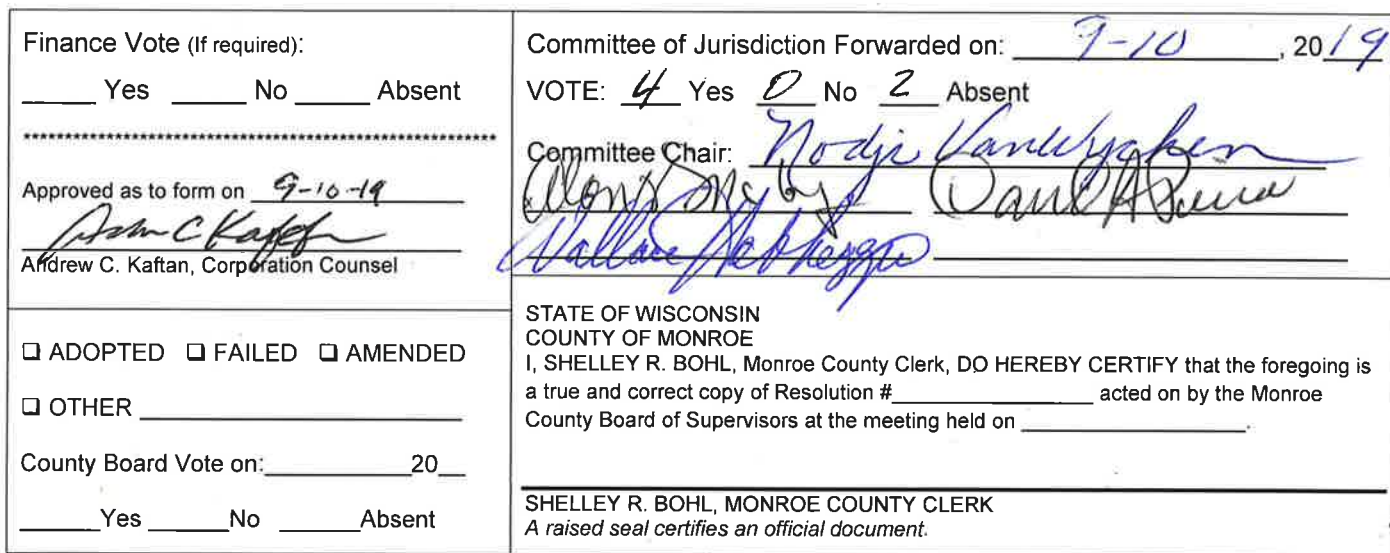 Finance Vote (If required):
_____ Yes _____ No _____ Absent
************************************************************
Approved as to form on 9-10-19
Andrew C. Kaftan, Corporation Counsel
❑ ADOPTED ❑ FAILED ❑ AMENDED
❑ OTHER ____________________
County Board Vote on:____________20__
_____Yes _____No _____Absent
Committee of Jurisdiction Forwarded on: 9-10, 2019
VOTE: 4 Yes 0 No 2 Absent
Committee Chair: Nodji VanWychen
STATE OF WISCONSIN
COUNTY OF MONROE
I, SHELLEY R. BOHL, Monroe County Clerk, DO HEREBY CERTIFY that the foregoing is
a true and correct copy of Resolution #__________________ acted on by the Monroe
County Board of Supervisors at the meeting held on ____________________.
SHELLEY R. BOHL, MONROE COUNTY CLERK
A raised seal certifies an official document.